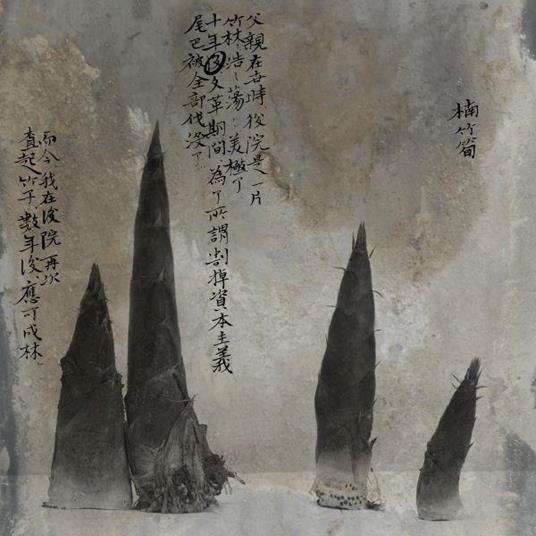 楠竹筍
父親在吾時後院是一片
竹林浩浩蕩蕩美極了
十年文革期間為了所謂割掉資本主義
尾巴被全部伐没了
而今我在後院再次
直起竹子數年後應可成林